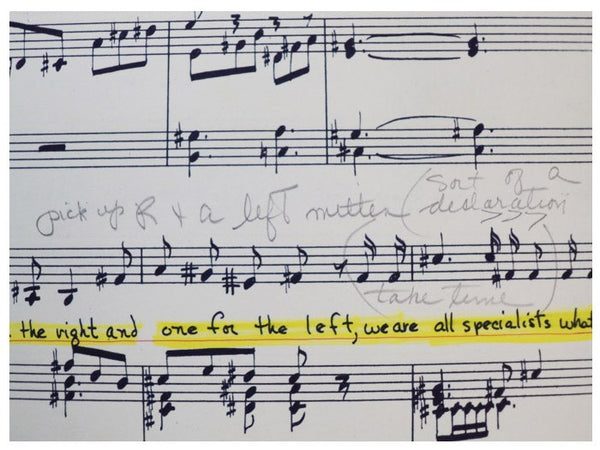 3 3
pick up R + a left mitten (sort of a
declaration
take time
. the right and one for the left, we are all specialists what